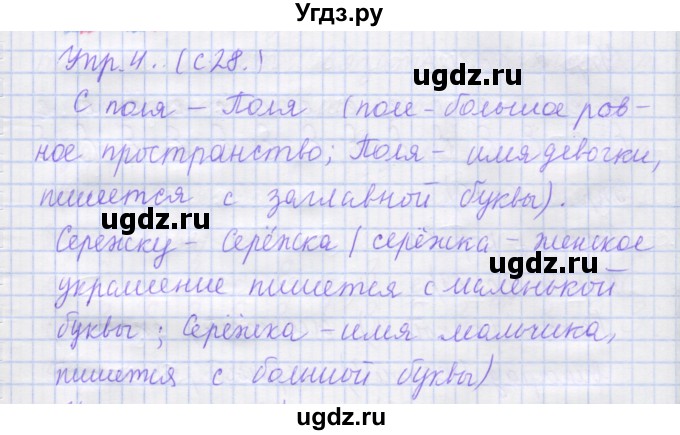 Угдз.ру
Упр.4. (с28.)
С поля – Поля (поле – большое ров-
ное пространство; Поля – имя девочки,
пишется с заглавной буквы).
Серёжку – Серёжка (серёжка – женское
украшение пишется с маленькой
буквы; Серёжка – имя мальчика,
пишется с большой буквы)
ugdz.ru
ugdz.ru
ugdz.ru
ugdz.ru
ugdz.ru
ugdz.ru